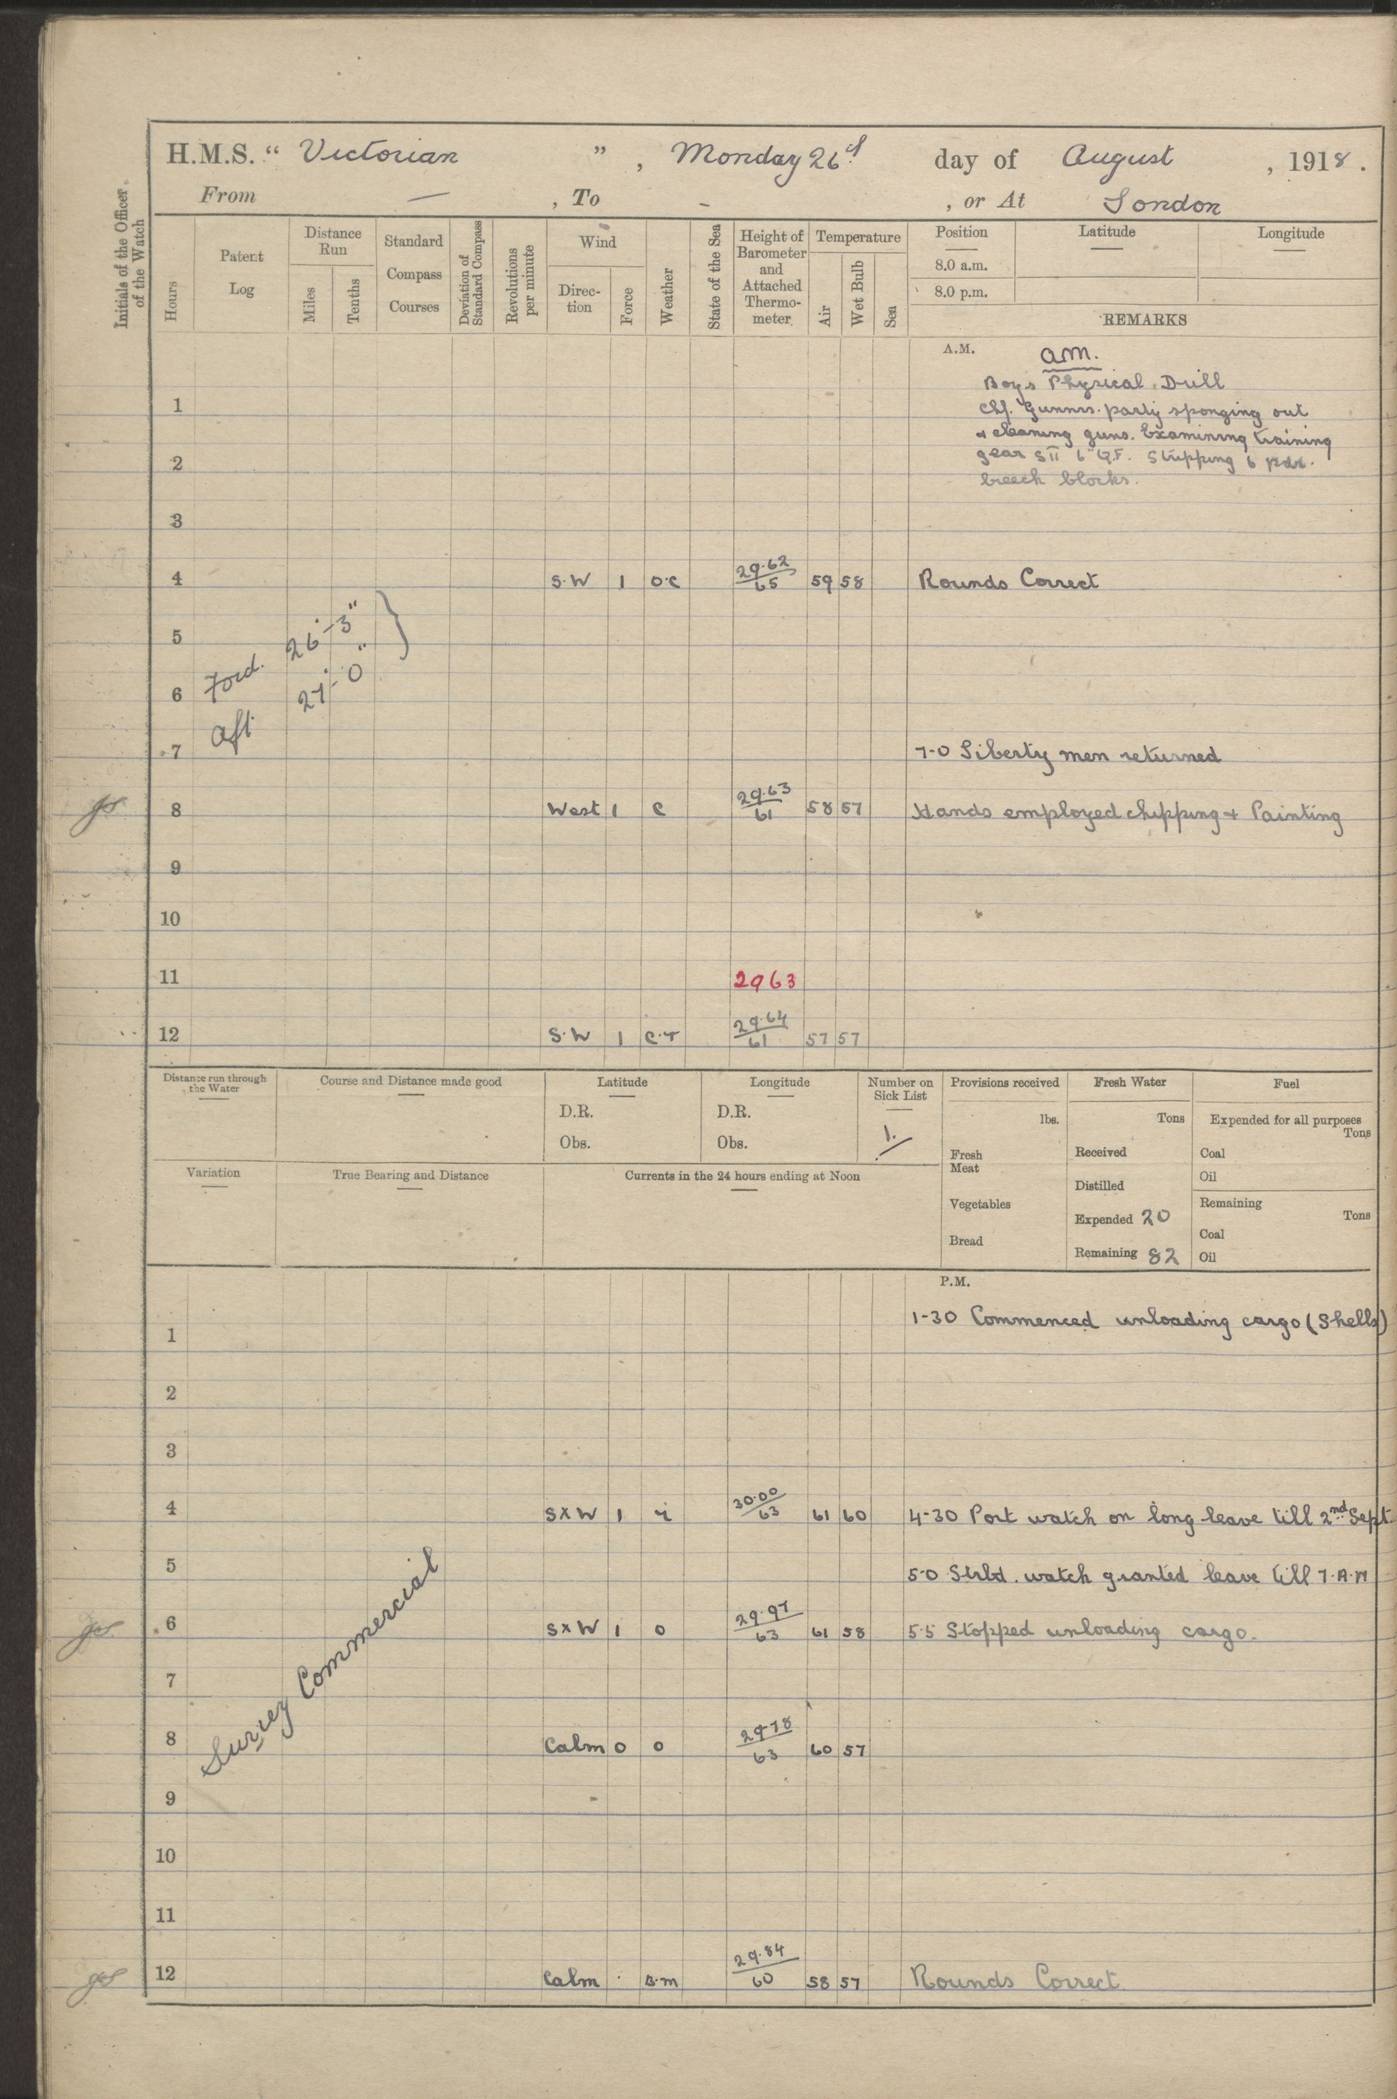 H.M.S. " Victorian " , Monday 26th day of August , 1918 .
From — , To - , or At London
Initials of the Officer of the Watch
Hours
Patent Log
Distance Run
Miles
Tenths
Standard Compass Courses
Deviation of Standard Compass
Revolutions per minute
Wind
Direction
Force
Weather
State of the Sea
Height of Barometer and Attached Thermometer
Temperature
Air
Wet Bulb
Sea
Position
8.0 a.m.
8.0 p.m.
Latitude
Longitude
REMARKS
A.M. am.
Boys Physical Drill
1 Chf. Gunnrs. party sponging out
& cleaning guns. Examining training
2 gear SII 6" Q.F. Stripping 6 pdr.
breech blocks.
3
4 S.W 1 o.c 29.62/65 59 58 Rounds Correct
5
Ford. 26'-3" }
6
Aft 27'-0"
7 7-0 Liberty men returned
8 West 1 c 29.63/61 58 57 Hands employed chipping & Painting
9
10
11 2963
12 S.W 1 c.r 29.64/61 57 57
Distance run through the Water
Course and Distance made good
Latitude
D.R.
Obs.
Longitude
D.R.
Obs.
Number on Sick List
1.
Variation
True Bearing and Distance
Currents in the 24 hours ending at Noon
Provisions received
lbs.
Fresh Meat
Vegetables
Bread
Fresh Water
Tons
Received
Distilled
Expended 20
Remaining 82
Fuel
Expended for all purposes
Tons
Coal
Oil
Remaining
Tons
Coal
Oil
P.M.
1 1-30 Commenced unloading cargo (Shells)
2
3
4 SxW 1 r 30.00/63 61 60 4-30 Port watch on long leave till 2nd Sept.
5 5.0 Strbd. watch granted leave till 7.A.M
6 SxW 1 o 29.97/63 61 58 5.5 Stopped unloading cargo.
Surrey Commercial
7
8 Calm 0 o 29.78/63 60 57
9
10
11
12 Calm . B.m 29.84/60 58 57 Rounds Correct